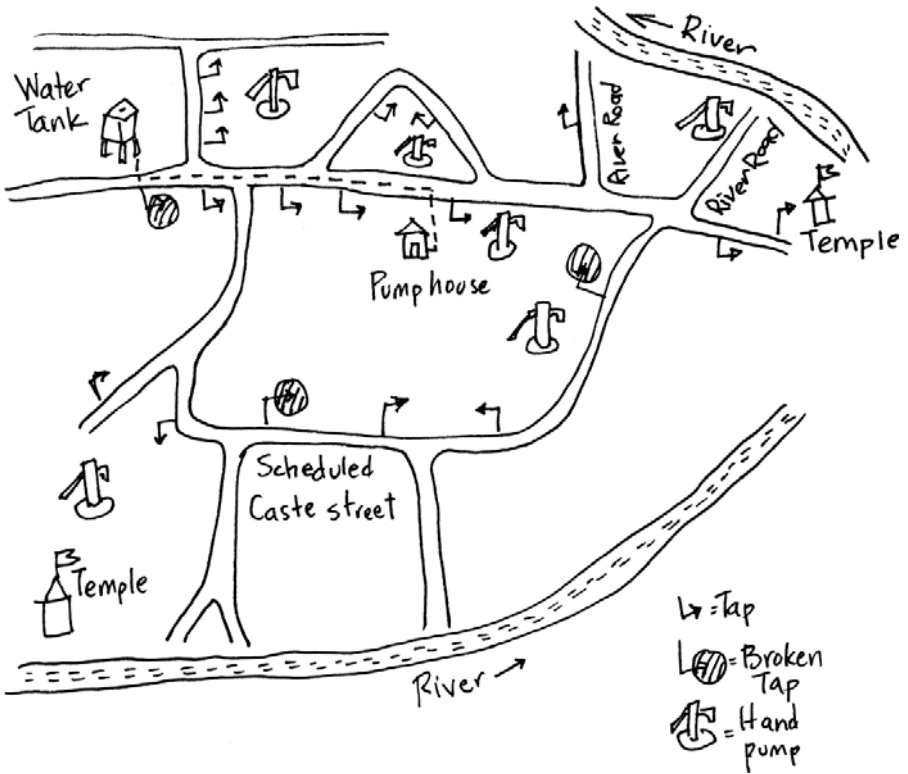 River
Water
Tank
River Road
River Road
Temple
Pumphouse
Scheduled
Caste street
Temple
River
= Tap
= Broken
Tap
= Hand
pump